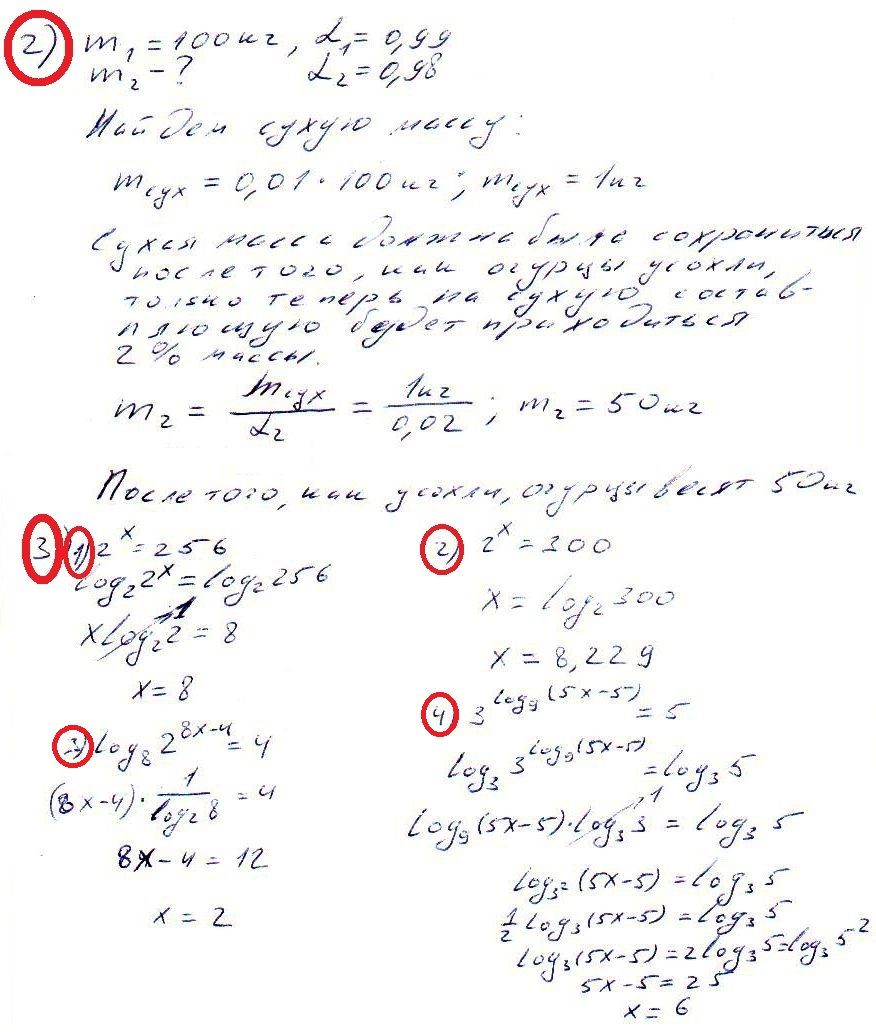 2) m₁ = 100 кг, α₁ = 0,99
m₂ - ? α₂ = 0,98
Найдем сухую массу:
mсух = 0,01 · 100 кг; mсух = 1 кг
Сухая масса должна была сохраниться
после того, как огурцы усохли,
только теперь на сухую состав-
ляющую будет приходиться
2 % массы.
m₂ = mсух/α₂ = 1кг/0,02; m₂ = 50 кг
После того, как усохли, огурцы весят 50 кг
3) 1) 2^x = 256
log₂ 2^x = log₂ 256
x log₂ 2 = 8
1
x = 8
2) 2^x = 300
x = log₂ 300
x = 8,229
3) log₈ 2^(8x-4) = 4
(8x-4) · 1/log₂ 8 = 4
8x - 4 = 12
x = 2
4 3^(log₉(5x-5)) = 5
log₃ 3^(log₉(5x-5)) = log₃ 5
log₉(5x-5) · log₃ 3 = log₃ 5
1
log₃²(5x-5) = log₃ 5
1/2 log₃(5x-5) = log₃ 5
log₃(5x-5) = 2 log₃ 5 = log₃ 5²
5x - 5 = 25
x = 6